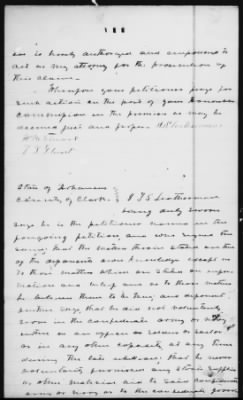 is hereby authorized and empowered to
act as my attorney for the prosecution of
this claim.
Wherefore your petitioners pray for
such action on the part of your Honorable
Commission in the premises as may be
deemed just and proper.
State of Arkansas
County of Clark
being duly sworn
says he is the petitioner named in the
foregoing petition and who signed the
same; that the matters therein stated are true
of the deponents own knowledge except as
to those matters which are stated on infor-
mation and belief and as to those matters
he believes them to be true; and deponent
further says that he did not voluntarily
serve in the confederate army or navy
either as an officer or soldier or sailor
or in any other capacity at any time
during the late rebellion; that he never
voluntarily furnished any stores supplies
or other material aid to said
army or navy or to the confederate